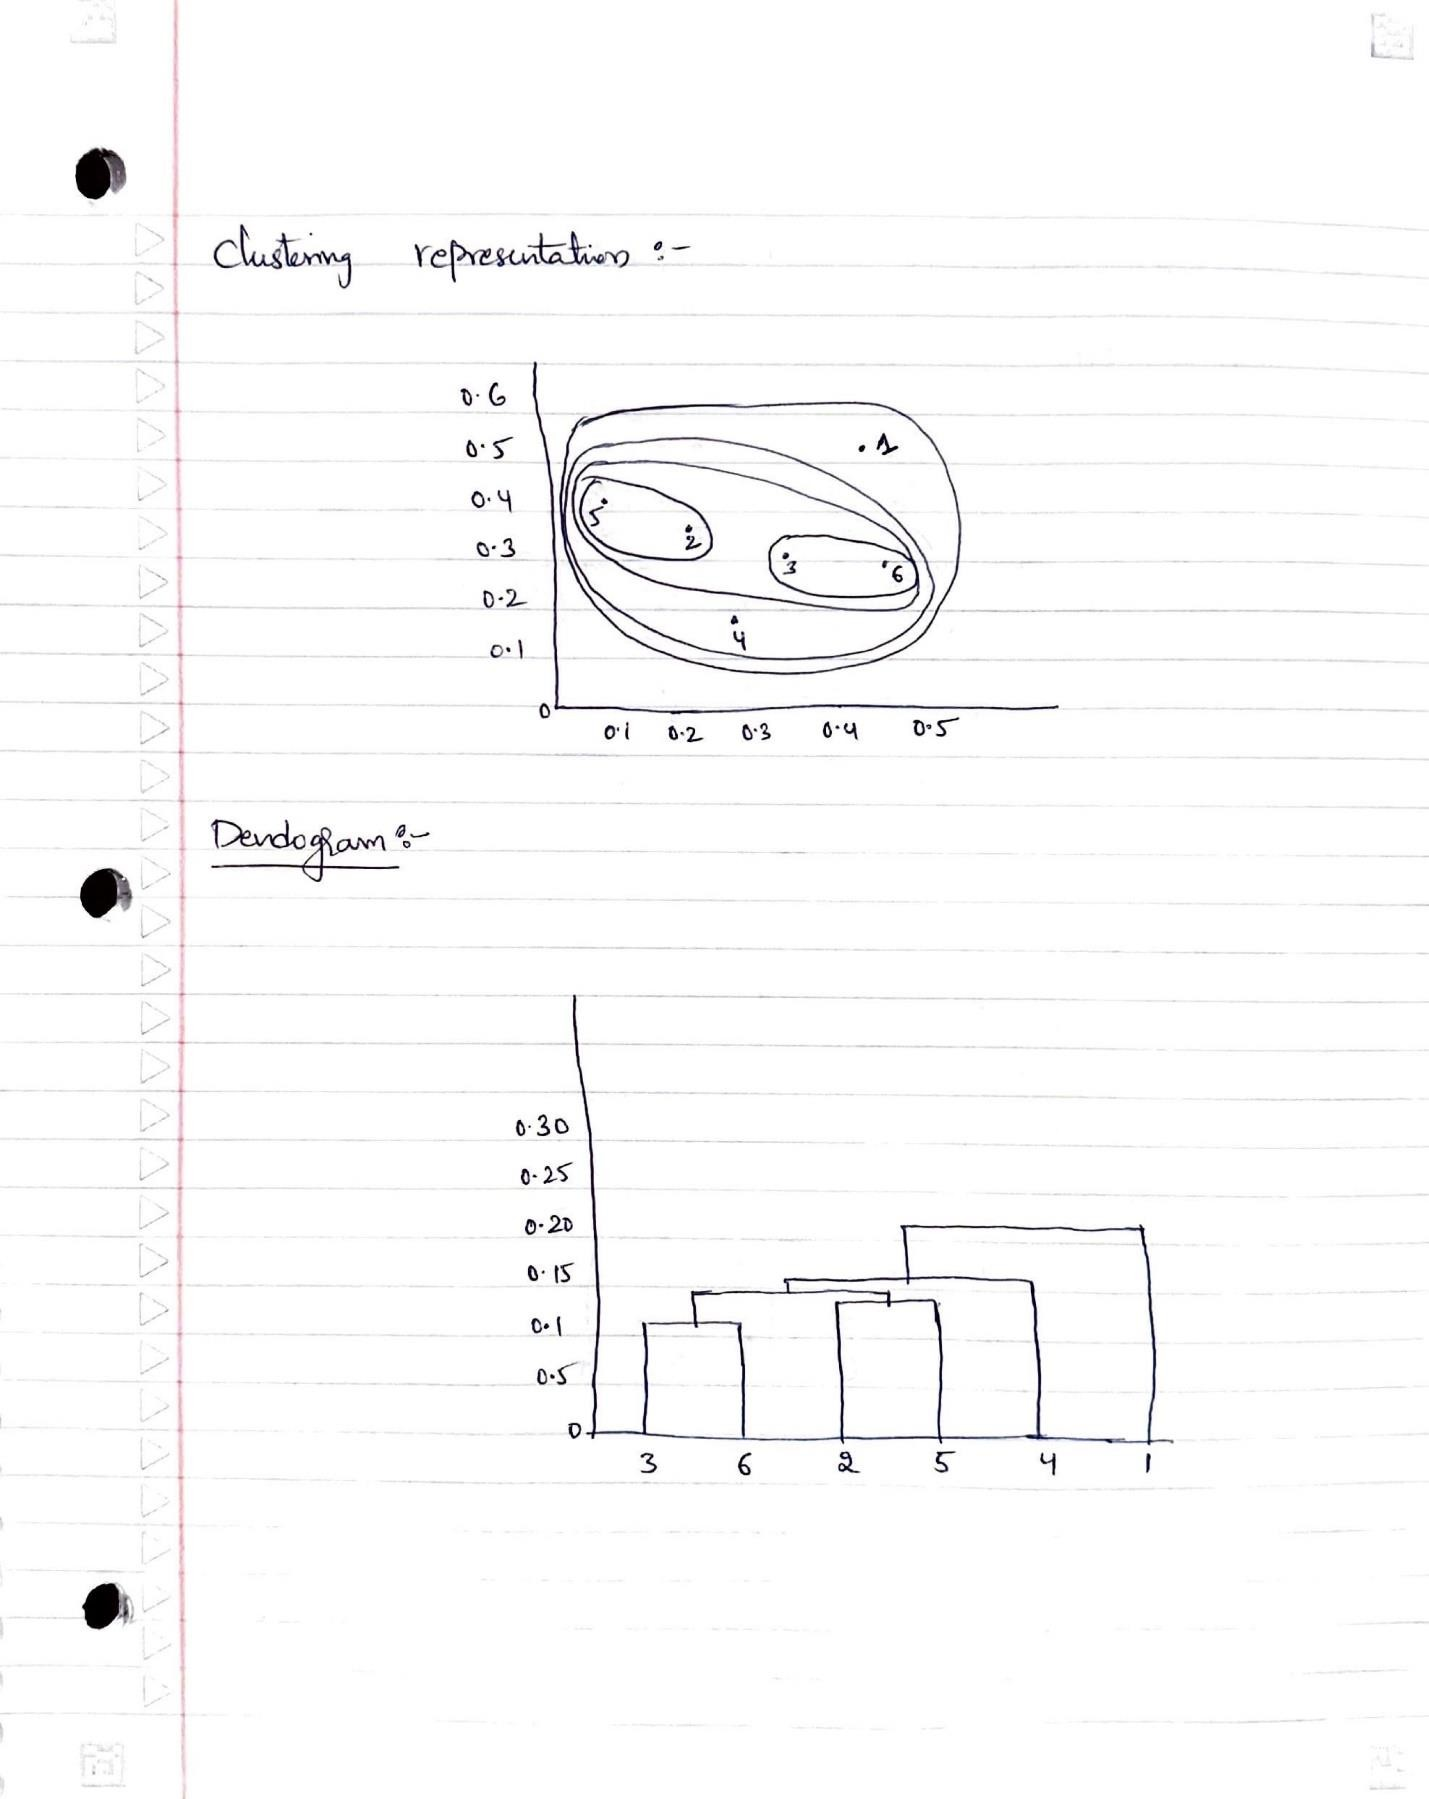 Clustering representation :-
0.6
0.5
0.4
0.3
0.2
0.1
0
.1
5
2
3
6
4
0.1 0.2 0.3 0.4 0.5
Dendogram :-
0.30
0.25
0.20
0.15
0.1
0.5
0
3 6 2 5 4 1